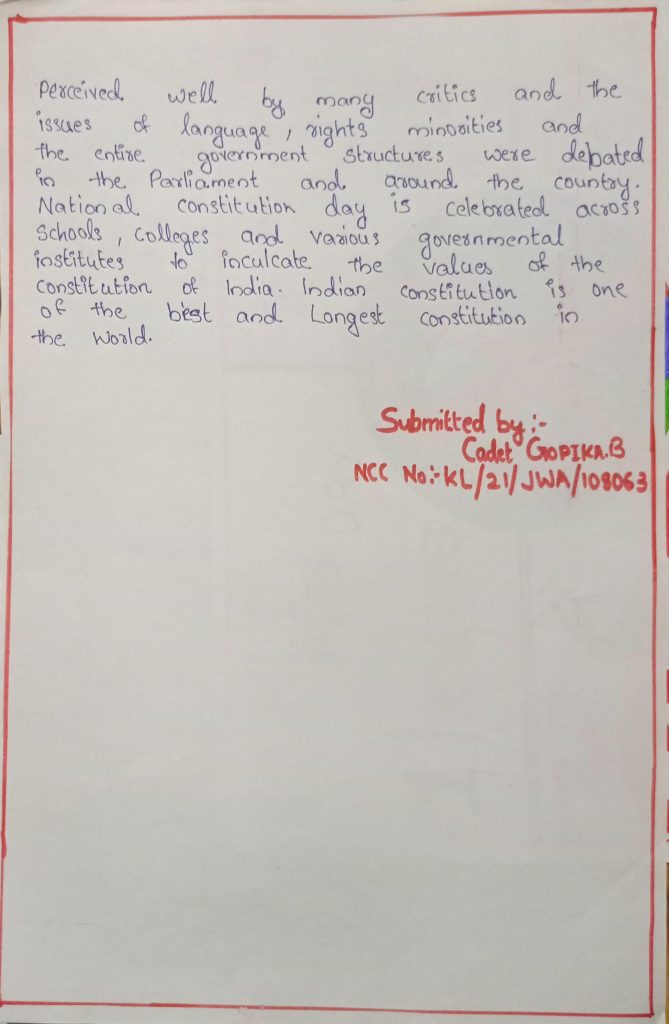 Perceived well by many critics and the
issues of language, rights minorities and
the entire government structures were debated
in the Parliament and around the country.
National constitution day is celebrated across
Schools, Colleges and various governmental
institutes to inculcate the values of the
constitution of India. Indian constitution is one
of the best and Longest constitution in
the world.
Submitted by :-
Cadet GOPIKA.B
NCC No:- KL/21/JWA/108063